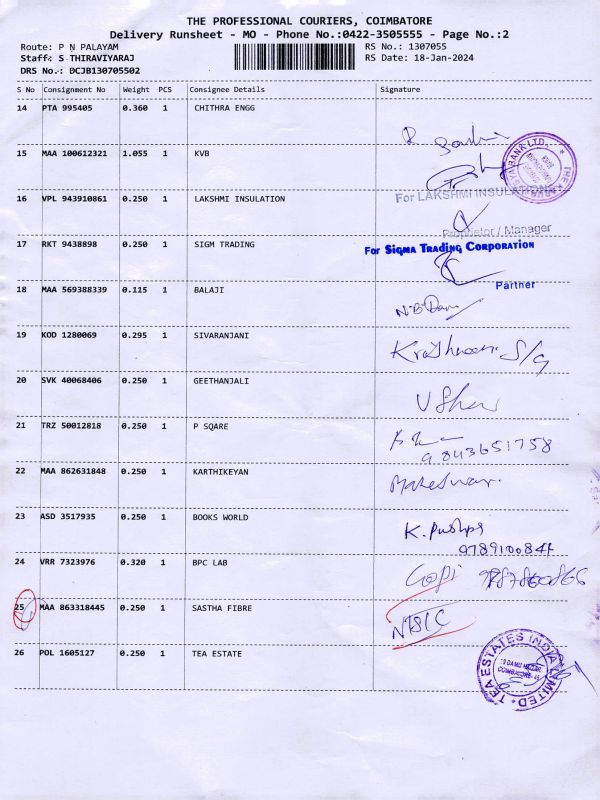 THE PROFESSIONAL COURIERS, COIMBATORE
Delivery Runsheet - MO - Phone No.:0422-3505555 - Page No.:2
Route: P N PALAYAM RS No.: 1307055
Staff: S THIRAVIYARAJ RS Date: 18-Jan-2024
DRS No.: DCJB130705502
S No Consignment No Weight PCS Consignee Details Signature
14 PTA 995405 0.360 1 CHITHRA ENGG
15 MAA 100612321 1.055 1 KVB
16 VPL 943910861 0.250 1 LAKSHMI INSULATION For LAKSHMI INSULATION
Proprietor / Manager
17 RKT 9438898 0.250 1 SIGM TRADING For SIGMA TRADING CORPORATION
Partner
18 MAA 569388339 0.115 1 BALAJI
19 KOD 1280069 0.295 1 SIVARANJANI
20 SVK 40068406 0.250 1 GEETHANJALI
21 TRZ 50012818 0.250 1 P SQARE
9843651758
22 MAA 862631848 0.250 1 KARTHIKEYAN Maheswari
23 ASD 3517935 0.250 1 BOOKS WORLD K. Pushpa
24 VRR 7323976 0.320 1 BPC LAB Gopi
25 MAA 863318445 0.250 1 SASTHA FIBRE N/S/C
26 POL 1605127 0.250 1 TEA ESTATE TEA ESTATES INDIA LIMITED